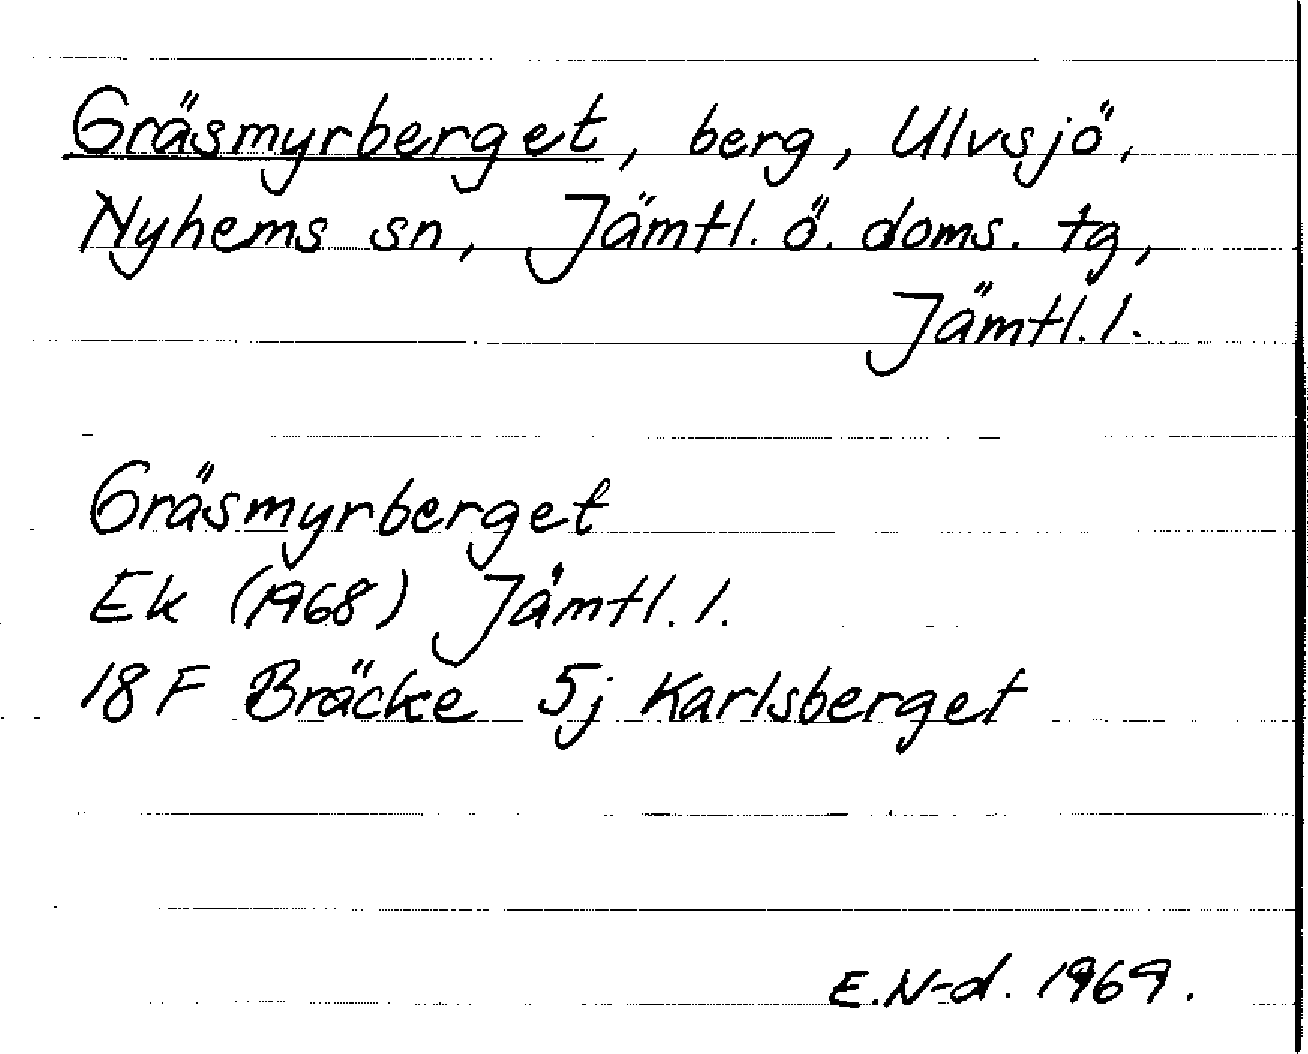 Gräsmyrberget, berg, Ulvsjö,
Nyhems sn, Jämtl. ö. doms. tg,
Jämtl. l.
Gräsmyrberget
Ek (1968) Jämtl. l.
18 F Bräcke 5j Karlsberget
E.N-d. 1969.